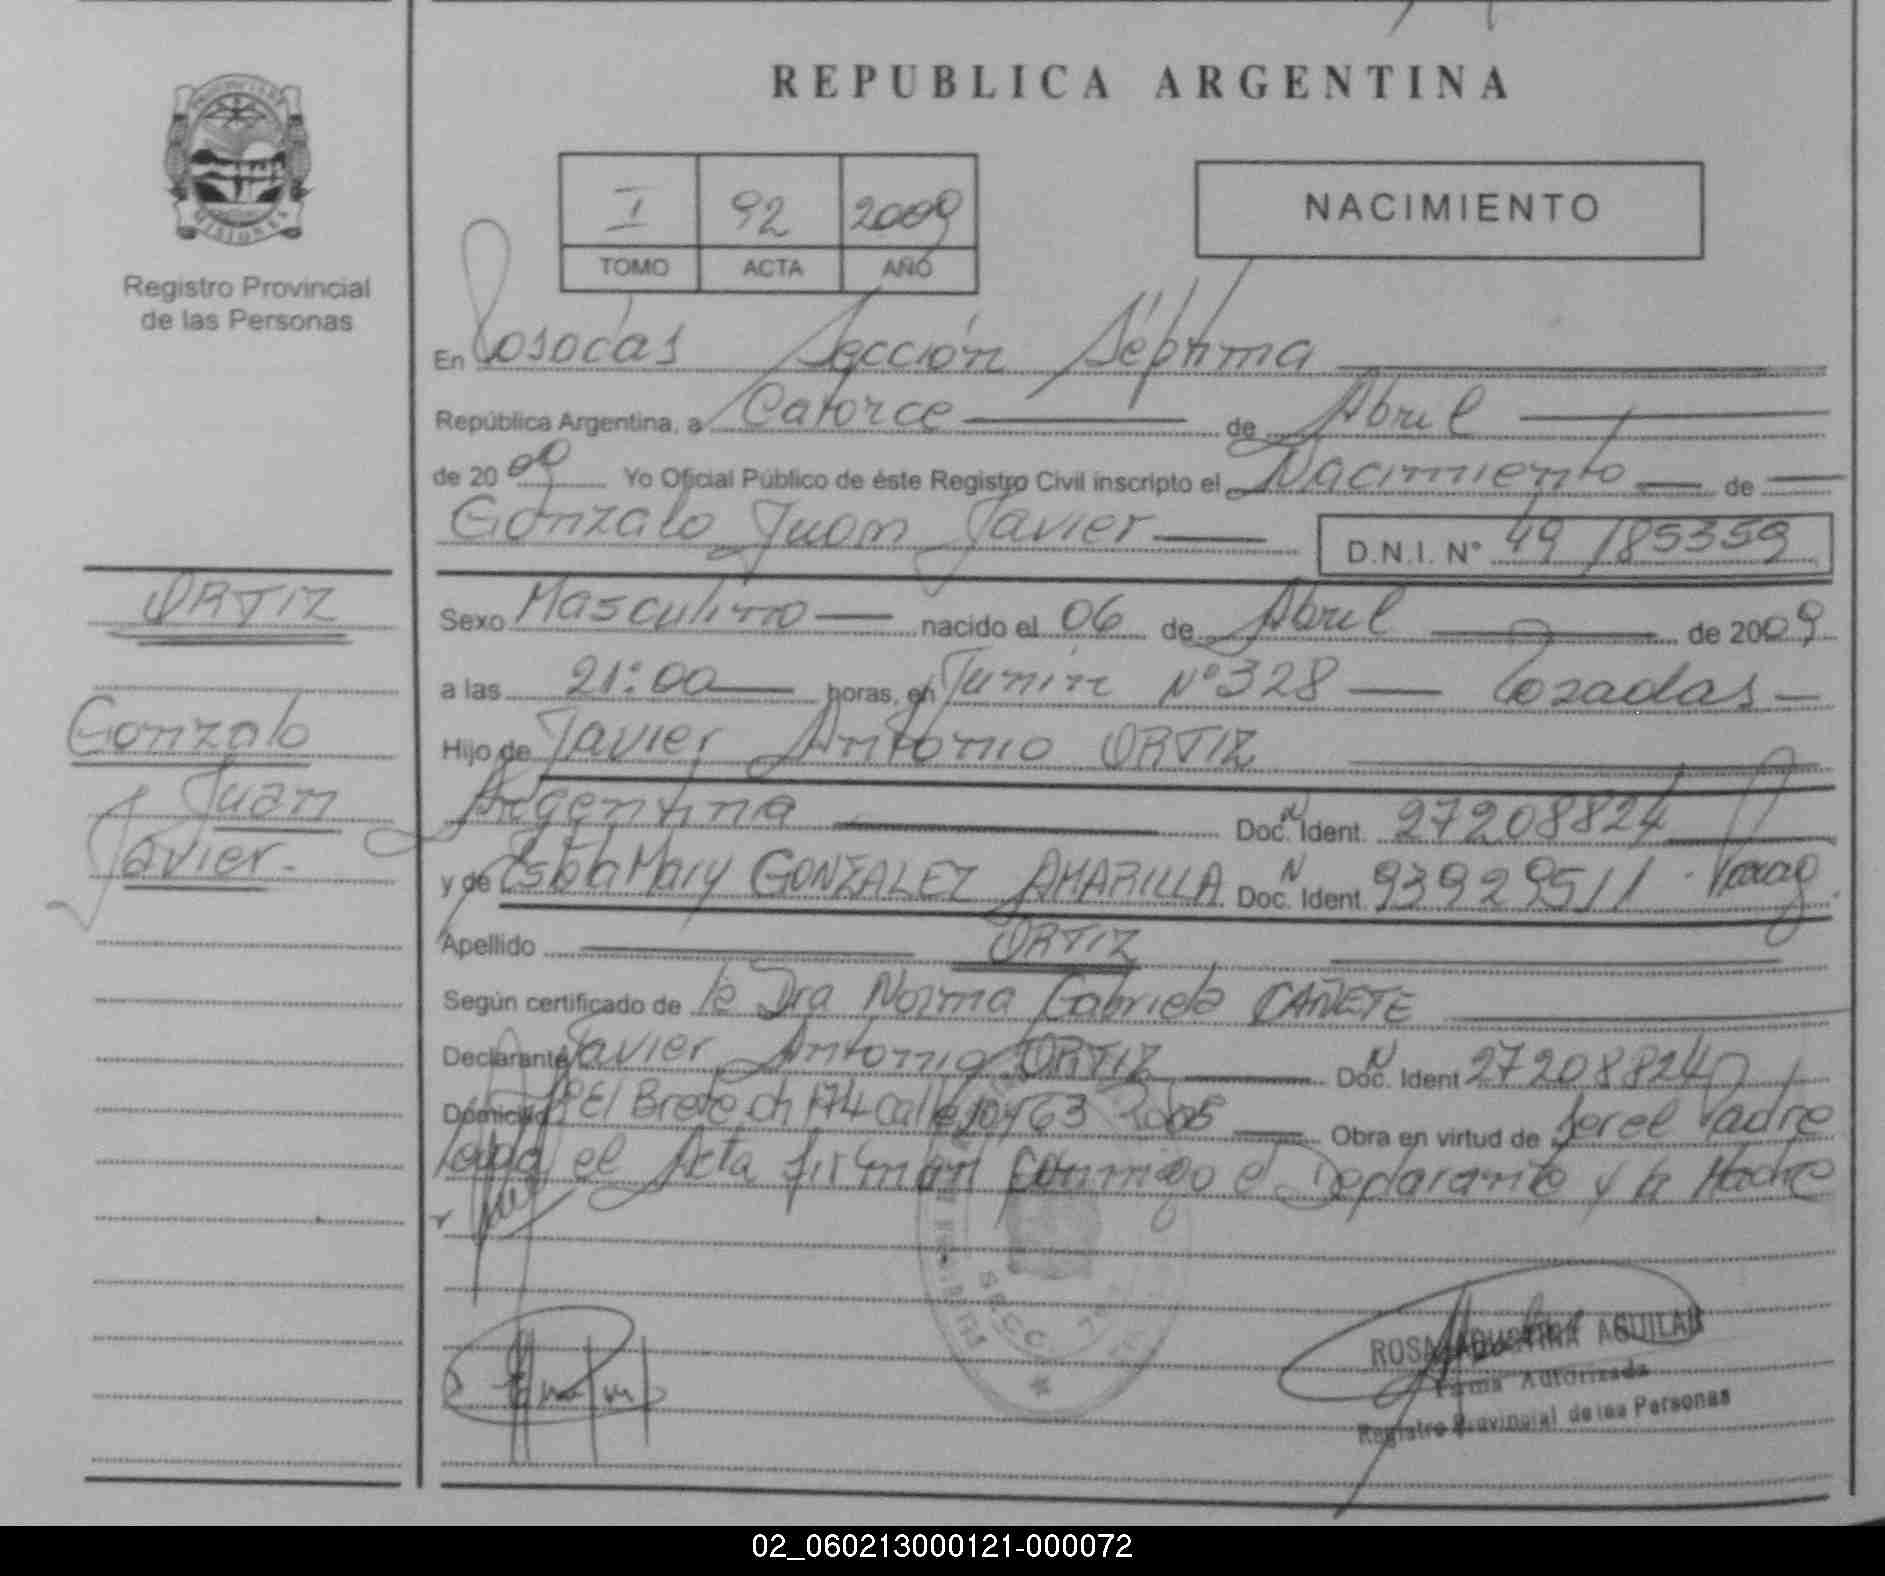 REPUBLICA ARGENTINA
I 92 2009
TOMO ACTA AÑO
NACIMIENTO
Registro Provincial
de las Personas
En Posadas Sección Séptima
República Argentina, a Catorce de Abril
de 2009 Yo Oficial Público de éste Registro Civil inscripto el Nacimiento de
Gonzalo Juan Javier D.N.I. N° 49185359
ORTIZ
Gonzalo
Juan
Javier.-
Sexo Masculino nacido el 06 de Abril de 2009
a las 21:00 horas, en Junín N° 328 Posadas
Hijo de Javier Antonio ORTIZ
Argentina Doc. N Ident. 27208824
y de Mary GONZALEZ AMARILLA Doc. N Ident. 93929511
Apellido ORTIZ
Según certificado de la Dra Norma Gabriela CAÑETE
Declarante Javier Antonio ORTIZ Doc. N Ident 27208824
Domicilio ch 174 Obra en virtud de ser el Padre
el Acta firman conmigo el Declarante y la Madre
SECC.
ROSA AGUILAR
Firma Autorizada
Registro Provincial de las Personas
02_060213000121-000072